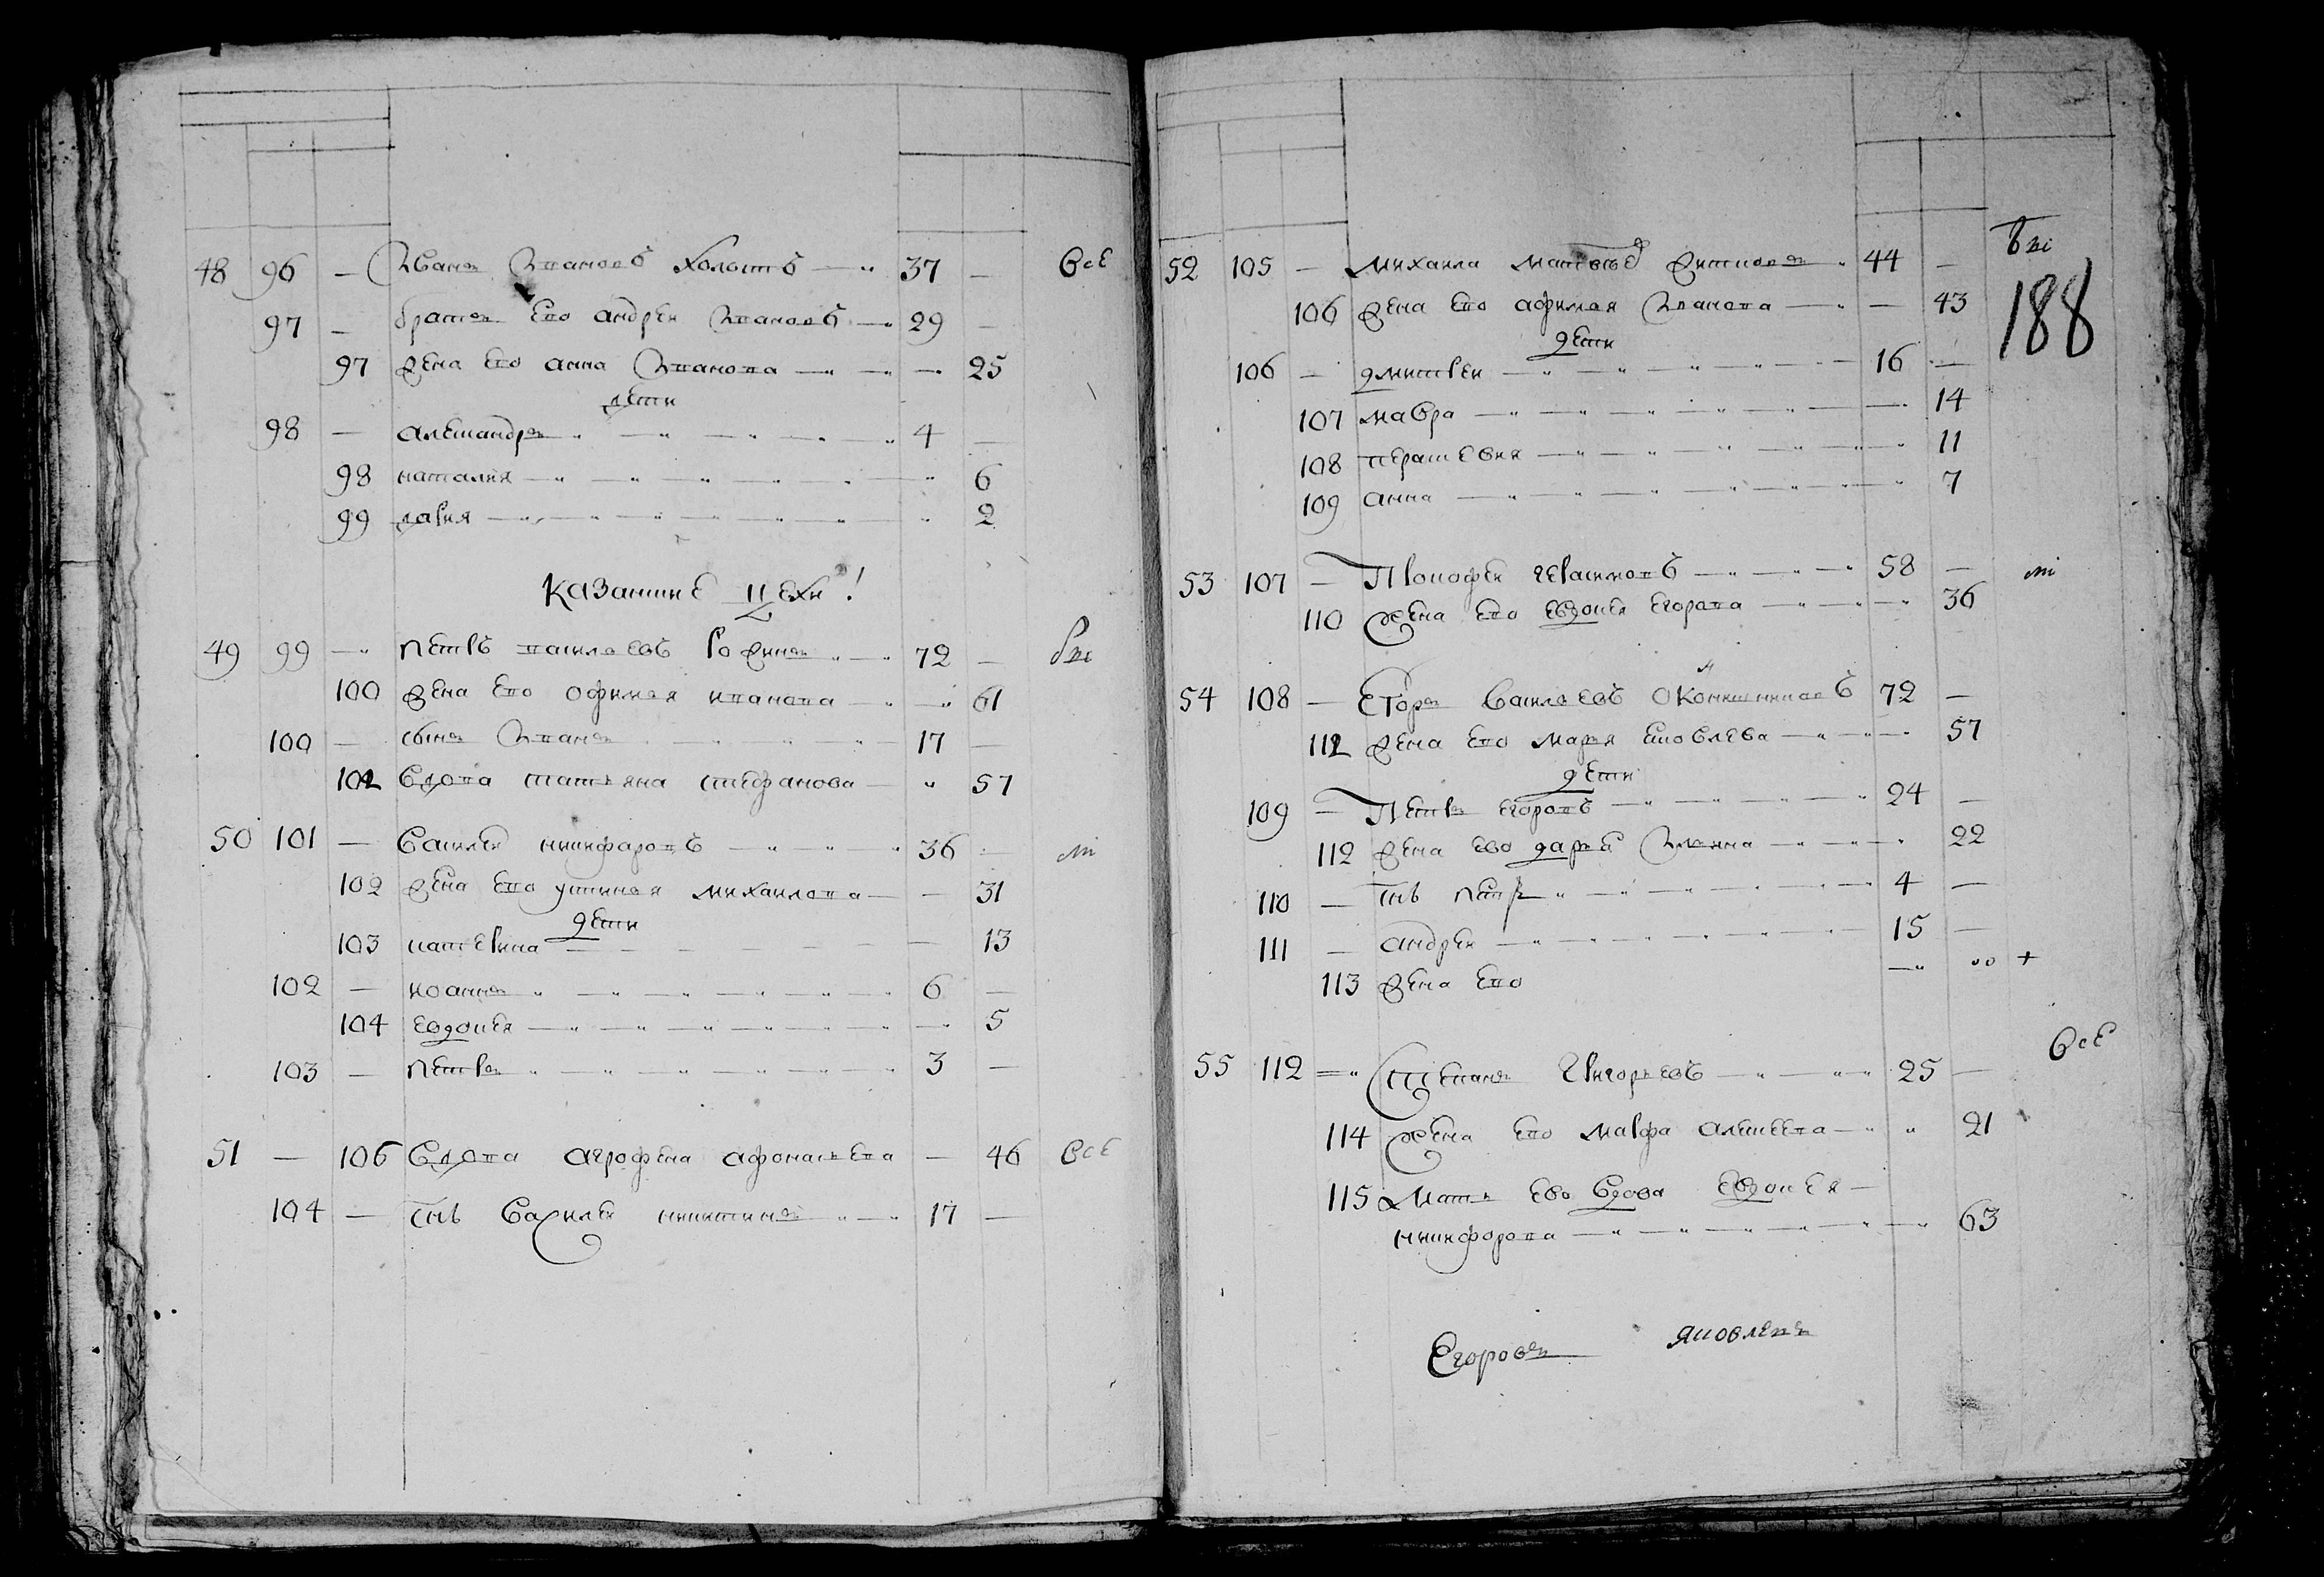 48 96 — Иванъ Ивановъ холостъ — 37 — все
97 — братъ ево андреи Ивановъ — 29 —
97 жена ево анна Иванова — — 25
дети
98 — александръ 4 —
98 наталия 6
99 дария 2
казанские цехи!
49 99 — петръ василевъ 72 —
100 жена ево офимия иванова — 61
100 — сынъ Иванъ 17 —
101 вдова татьяна стефанова — 57
50 101 — василеи никифоровъ — 36 —
102 жена ево устиния михаилова — 31
дети
103 катерина — 13
102 — иоаннъ 6 —
104 евдокея — 5
103 — петръ 3 —
51 — 106 вдова агрофена афонасьева — 46 все
104 — снъ василеи никитинъ — 17 —
52 105 — михаила матвеевъ 44 —
188
106 жена ево афимия Иванова — 43
дети
106 — дмитреи 16 —
107 мавра — 14
108 перасковия — 11
109 анна — 7
53 107 — Прокофеи герасимовъ — 58 —
110 жена ево евдокея егорова — 36
54 108 — Егоръ василевъ 72 —
111 жена ево марья яковлева — 57
дети
109 — Петръ егоровъ 24 —
112 жена ево дарья — 22
110 — снъ петръ 4 —
111 — андреи 15 —
113 жена ево — +
все
55 112 — Степанъ григорьевъ — 25 —
114 жена ево марфа алексеева — 21
115 мать ево вдова евдокея —
никифорова — 63
Егоровъ яковлевъ